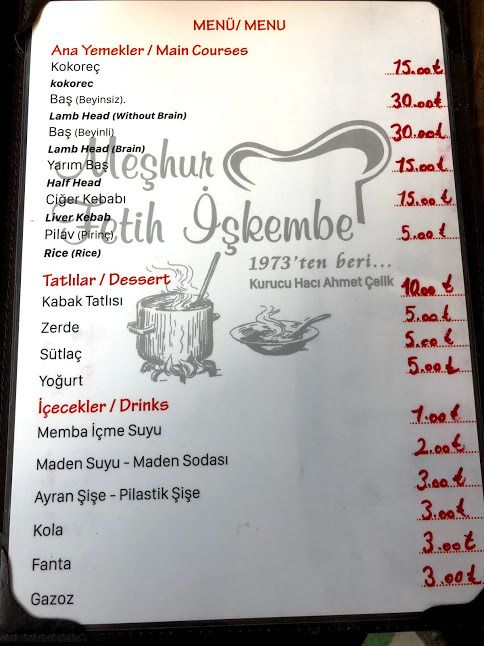 MENÜ/ MENU
Ana Yemekler / Main Courses
Kokoreç 15.00 ₺
kokorec
Baş (Beyinsiz). 30.00 ₺
Lamb Head (Without Brain)
Baş (Beyinli) 30.00 ₺
Lamb Head (Brain)
Yarım Baş 15.00 ₺
Half Head
Ciğer Kebabı 15.00 ₺
Liver Kebab
Pilav (Pirinç) 5.00 ₺
Rice (Rice)
Meşhur
Fetih İşkembe
1973'ten beri...
Kurucu Hacı Ahmet Çelik
Tatlılar / Dessert
Kabak Tatlısı 10.00 ₺
Zerde 5.00 ₺
Sütlaç 5.00 ₺
Yoğurt 5.00 ₺
İçecekler / Drinks
Memba İçme Suyu 1.00 ₺
Maden Suyu - Maden Sodası 2.00 ₺
Ayran Şişe - Pilastik Şişe 3.00 ₺
Kola 3.00 ₺
Fanta 3.00 ₺
Gazoz 3.00 ₺